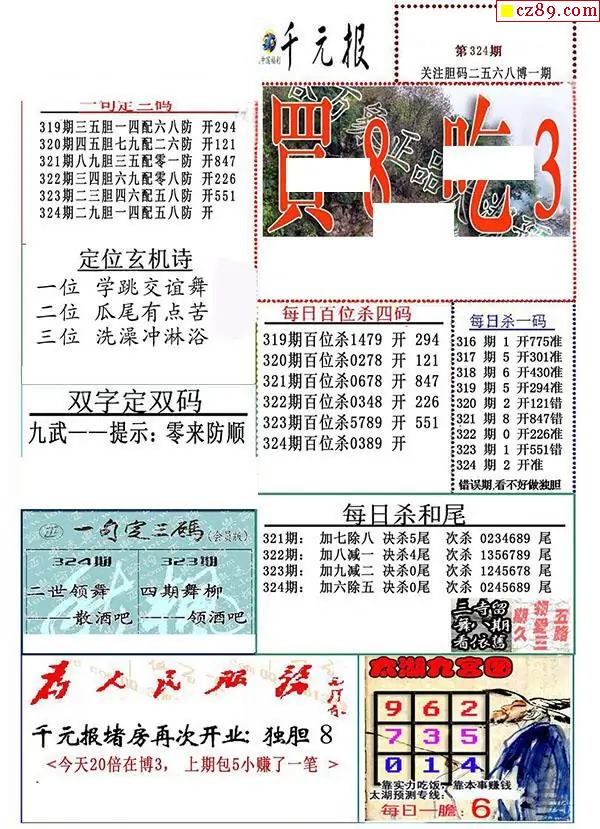 cz89.com
千元报
第324期
关注胆码二五六八博一期
一句定三码
319期三五胆一四配六八防 开294
320期四五胆七九配二六防 开121
321期八九胆三五配零一防 开847
322期三四胆六九配零八防 开226
323期二三胆四六配五八防 开551
324期二九胆一四配五八防 开
買8吃3
定位玄机诗
一位 学跳交谊舞
二位 瓜尾有点苦
三位 洗澡冲淋浴
每日百位杀四码
319期百位杀1479 开 294
320期百位杀0278 开 121
321期百位杀0678 开 847
322期百位杀0348 开 226
323期百位杀5789 开 551
324期百位杀0389 开
每日杀一码
316 期 1 开775准
317 期 5 开301准
318 期 6 开430准
319 期 5 开294准
320 期 2 开121错
321 期 8 开847错
322 期 0 开226准
323 期 1 开551错
324 期 2 开准
错误期,看不好做独胆
双字定双码
九武——提示:零来防顺
每日杀和尾
321期: 加七除八 决杀5尾 次杀 0234689 尾
322期: 加八减一 决杀4尾 次杀 1356789 尾
323期: 加九减二 决杀0尾 次杀 1245678 尾
324期: 加六除五 决杀0尾 次杀 0245689 尾
一句定三碼(会员版)
324期 323期
二世领舞 四期舞柳
——散酒吧 ——领酒吧
三奇留
舞八期
看依舊
为人民服务
千元报堵房再次开业:独胆 8
<今天20倍在博3, 上期包5小赚了一笔 >
太湖九宫图
9 6 2
7 3 5
0 1 4
靠实力吃饭, 靠本事赚钱
太湖预测专线:
每日一胆: 6